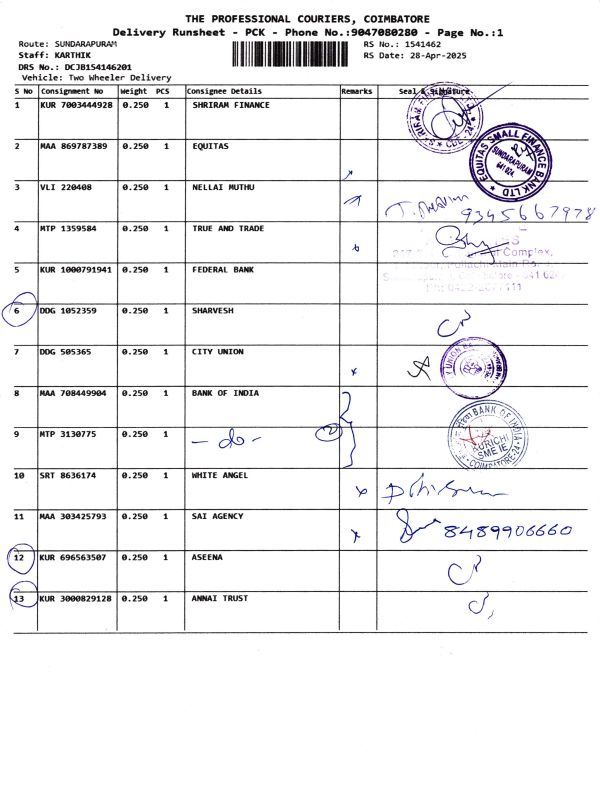 THE PROFESSIONAL COURIERS, COIMBATORE
Delivery Runsheet - PCK - Phone No.:9047080280 - Page No.:1
Route: SUNDARAPURAM RS No.: 1541462
Staff: KARTHIK RS Date: 28-Apr-2025
DRS No.: DCJB154146201
Vehicle: Two Wheeler Delivery
S No Consignment No Weight PCS Consignee Details Remarks Seal & Signature
1 KUR 7003444928 0.250 1 SHRIRAM FINANCE
2 MAA 869787389 0.250 1 EQUITAS
EQUITAS SMALL FINANCE BANK LTD
SUNDARAPURAM
641024
3 VLI 220408 0.250 1 NELLAI MUTHU
9345667978
4 MTP 1359584 0.250 1 TRUE AND TRADE
Complex,
5 KUR 1000791941 0.250 1 FEDERAL BANK
6 DDG 1052359 0.250 1 SHARVESH
7 DDG 505365 0.250 1 CITY UNION
8 MAA 708449904 0.250 1 BANK OF INDIA
BANK OF INDIA
9 MTP 3130775 0.250 1 - do - 2
KURICHI
SME IE
COIMBATORE-24
10 SRT 8636174 0.250 1 WHITE ANGEL
11 MAA 303425793 0.250 1 SAI AGENCY
8489906660
12 KUR 696563507 0.250 1 ASEENA
13 KUR 3000829128 0.250 1 ANNAI TRUST